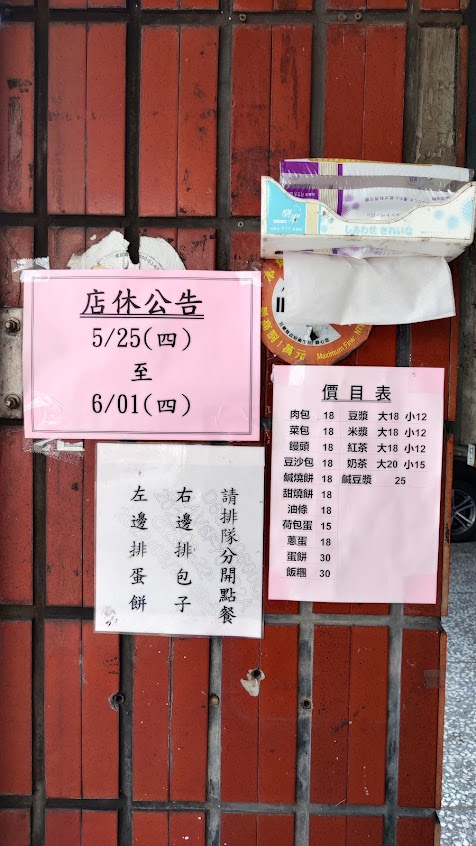 しあわせ きれいな
店休公告
5/25(四)
至
6/01(四)
Maximum Fine: NT
價目表
肉包 18 豆漿 大18 小12
菜包 18 米漿 大18 小12
饅頭 18 紅茶 大18 小12
豆沙包 18 奶茶 大20 小15
鹹燒餅 18 鹹豆漿 25
甜燒餅 18
油條 18
荷包蛋 15
蔥蛋 18
蛋餅 30
飯糰 30
請排隊分開點餐
右邊排包子
左邊排蛋餅